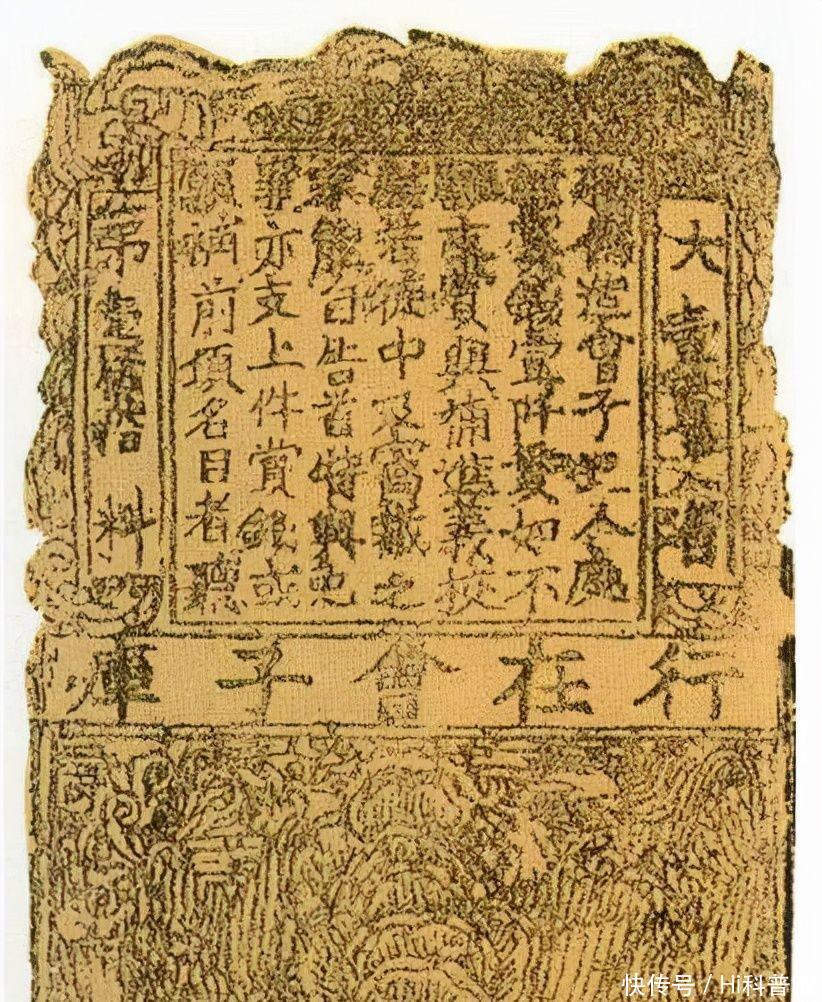 大壹貫文省
偽造會子犯人處
賞錢壹阡貫如不
願支賞與補進義校
若徒中及窩藏之
家能自告首特與免
罪亦支上件賞錢或
願補前項名目者聽
第 料
行在會子庫
快传号 / Hi科普